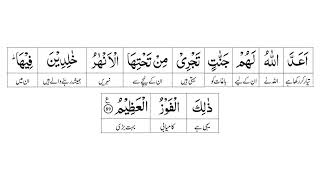 اَعَدَّ اللّٰهُ لَهُمْ جَنّٰتٍ تَجْرِیْ مِنْ تَحْتِهَا الْاَنْهٰرُ خٰلِدِیْنَ فِیْهَا ؕ
تیار کر رکھا ہے اللہ نے ان کے لیے باغات کو بہتی ہیں ان کے نیچے سے نہریں ہمیشہ رہنے والے ہیں ان میں
ذٰلِكَ الْفَوْزُ الْعَظِیْمُ ۠ ۸۹
یہی ہے کامیابی بہت بڑی